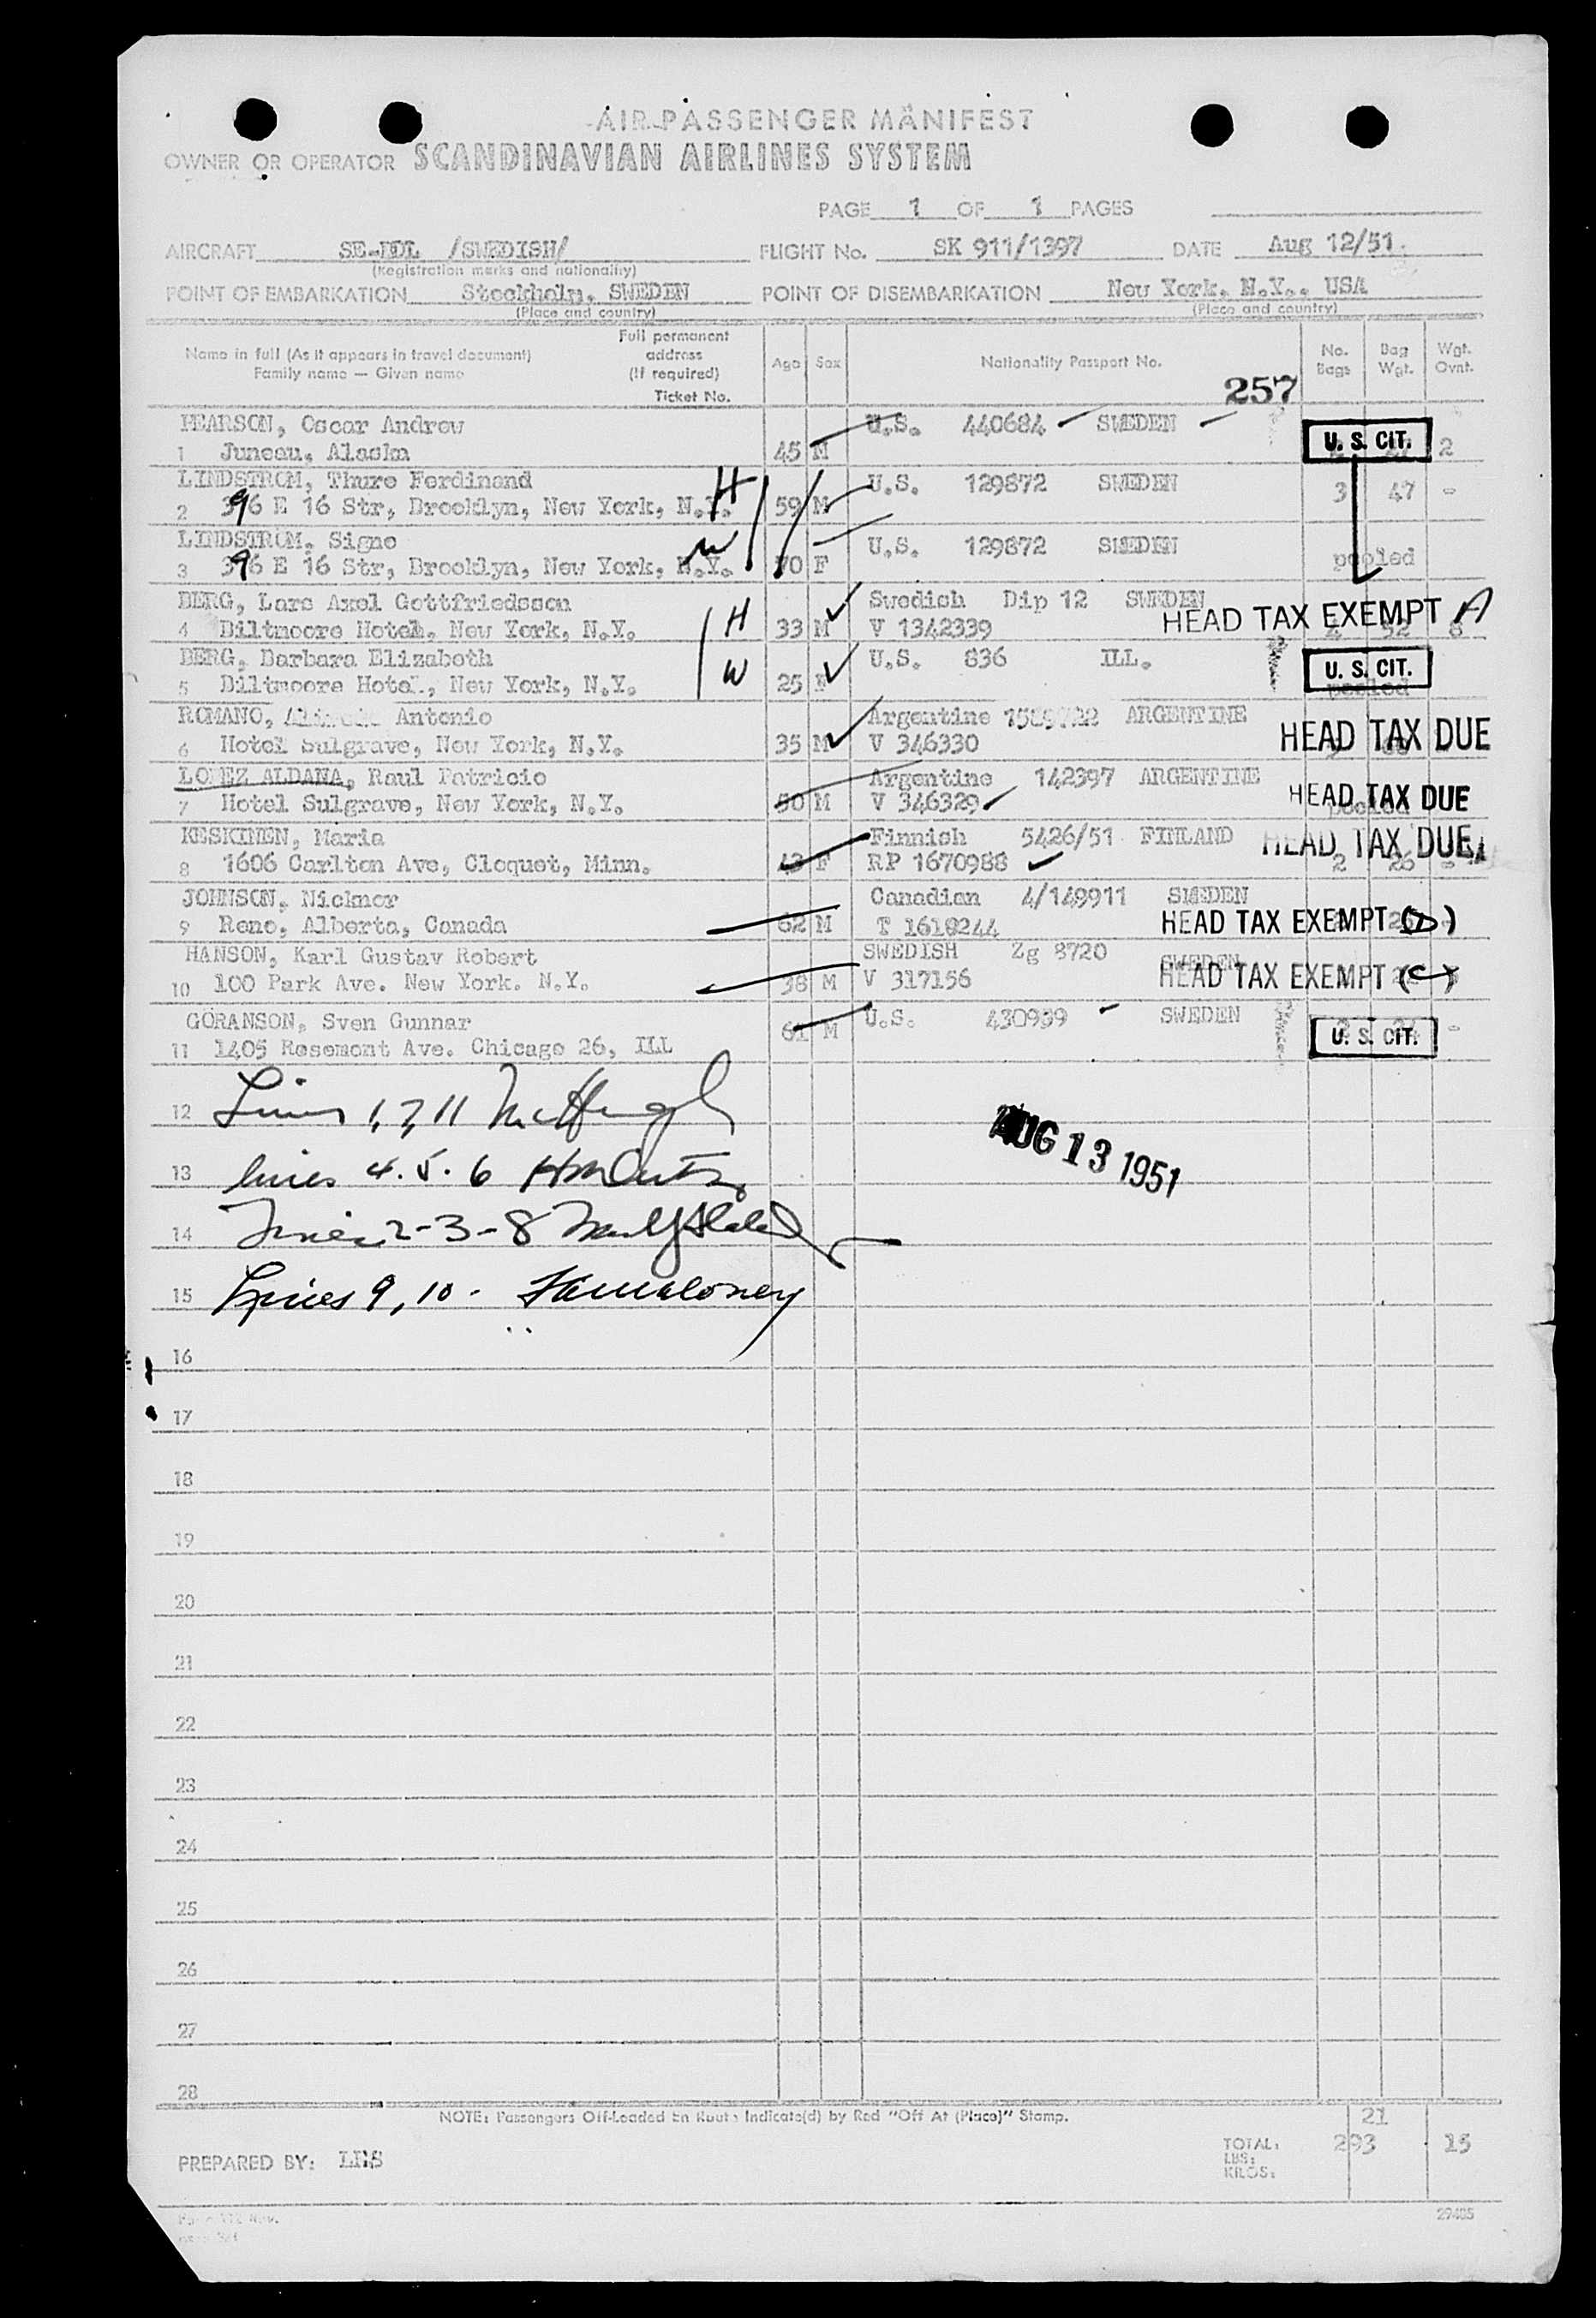 AIR PASSENGER MANIFEST
OWNER OR OPERATOR SCANDINAVIAN AIRLINES SYSTEM
PAGE 1 OF 1 PAGES
AIRCRAFT /SWEDISH/ FLIGHT No. SK 911/1397 DATE Aug 12/51.
(Registration marks and nationality)
POINT OF EMBARKATION Stockholm, SWEDEN POINT OF DISEMBARKATION New York, N.Y., USA
(Place and country) (Place and country)
Name in full (As it appears in travel document) Full permanent address (If required) Age Sex Nationality Passport No. No. Bags Bag Wgt. Wgt. Ovnt.
Family name — Given name
Ticket No. 257
PEARSON, Oscar Andrew U.S. 440684 SWEDEN
1 Juneau, Alaska 45 M U. S. CIT. 2
LINDSTROM, Thure Ferdinand H U.S. 129872 SWEDEN 3 47 -
2 396 E 16 Str, Brooklyn, New York, N.Y. 59 M
LINDSTROM, Signe W U.S. 129872 SWEDEN
3 396 E 16 Str, Brooklyn, New York, N.Y. 70 F pooled
BERG, Lars Axel Gottfriedsson Swedish Dip 12 SWEDEN
4 Biltmoore Hotel, New York, N.Y. H 33 M V 1342339 HEAD TAX EXEMPT A
BERG, Barbara Elizabeth U.S. 836 ILL.
5 Biltmoore Hotel, New York, N.Y. W 25 F U. S. CIT. pooled
ROMANO, Antonio Argentine ARGENTINE
6 Hotel Sulgrave, New York, N.Y. 35 M V 346330 HEAD TAX DUE
LOPEZ ALDANA, Raul Patricio Argentine 142397 ARGENTINE
7 Hotel Sulgrave, New York, N.Y. 50 M V 346329 HEAD TAX DUE pooled
KESKINEN, Maria Finnish 5426/51 FINLAND HEAD TAX DUE
8 1606 Carlton Ave, Cloquet, Minn. 43 F RP 1670988 2 26 -
JOHNSON, Nickner Canadian 4/149911 SWEDEN
9 Reno, Alberta, Canada 62 M T 1618244 HEAD TAX EXEMPT (D)
HANSON, Karl Gustav Robert SWEDISH Zg 8720 SWEDEN
10 100 Park Ave. New York. N.Y. 38 M V 317156 HEAD TAX EXEMPT (C)
GÖRANSON, Sven Gunnar U.S. 430939 SWEDEN
11 1405 Rosemont Ave. Chicago 26, ILL 61 M U. S. CIT. -
12 Lines 1, 7, 11 McHugh
AUG 13 1951
13 lines 4. 5. 6
14 Lines 2-3-8
15 Lines 9, 10. Maloney
16
17
18
19
20
21
22
23
24
25
26
27
28
NOTE: Passengers Off-Loaded En Route Indicate(d) by Red "Off At (Place)" Stamp.
21
TOTAL: 293 15
LBS:
KILOS:
PREPARED BY:
29405